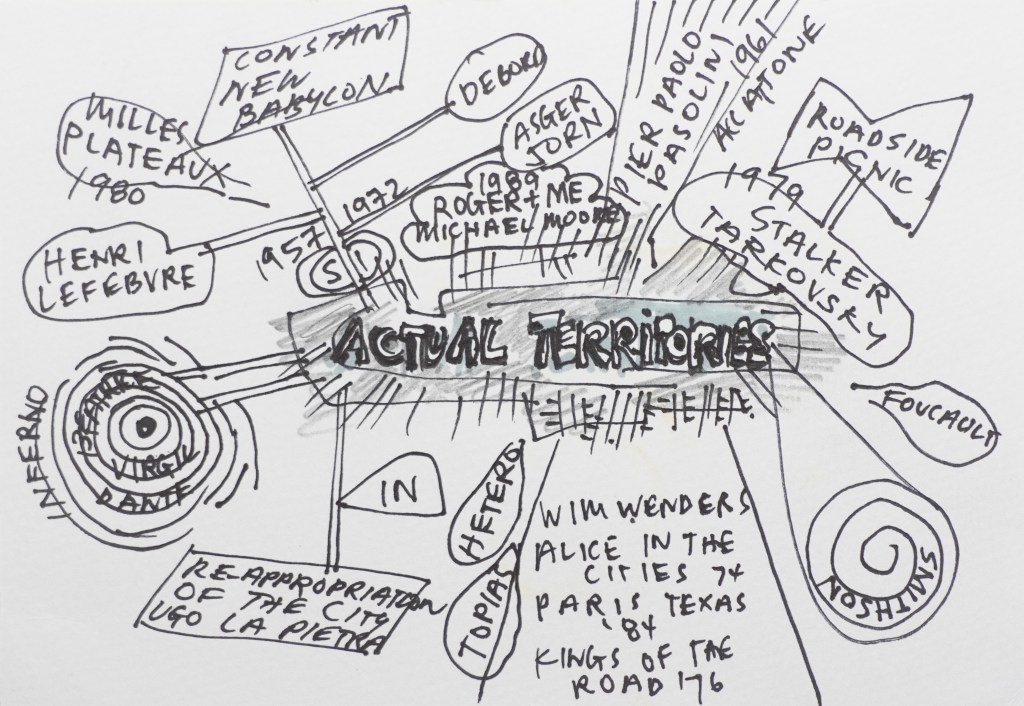 CONSTANT
NEW
BABYLON
DEBORD
ASGER
JORN
PIER PAOLO
PASOLINI
1961
ACCATONE
ROADSIDE
PICNIC
MILLES
PLATEAUX
1980
1957
1972
SI
1989
ROGER + ME
MICHAEL MOORE
1979
STALKER
TARKOVSKY
HENRI
LEFEBVRE
ACTUAL TERRITORIES
INFERNO
BEATRICE
VIRGIL
DANTE
FOUCAULT
IN
HETERO
TOPIAS
RE-APPROPRIATION
OF THE CITY
UGO LA PIETRA
WIM WENDERS
ALICE IN THE
CITIES 74
PARIS TEXAS
'84
KINGS OF THE
ROAD '76
SMITHSON